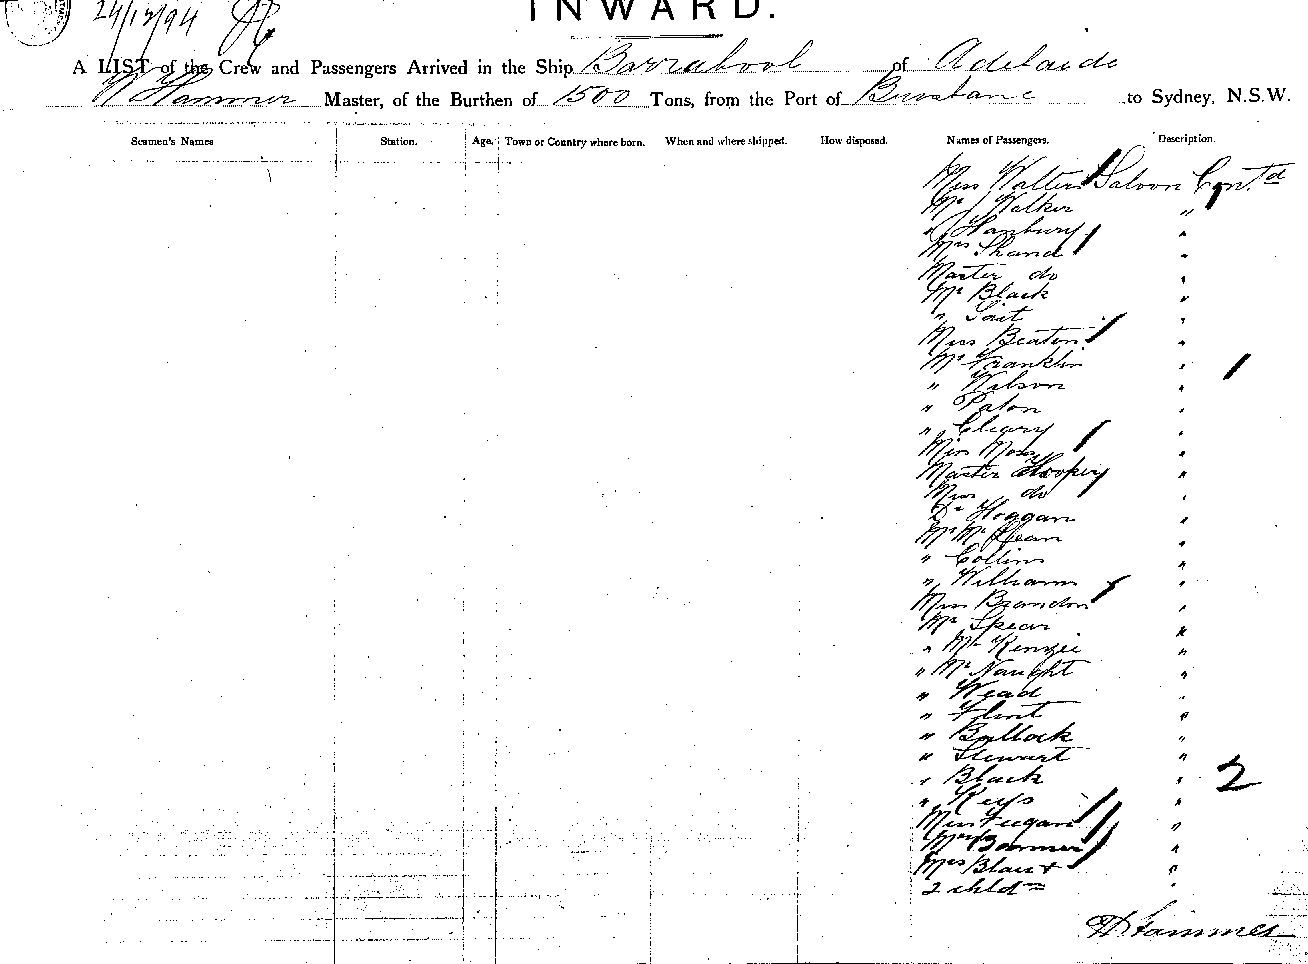 24/12/94
INWARD.
A LIST of the Crew and Passengers Arrived in the Ship Barrabool of Adelaide
W Hammer Master, of the Burthen of 1500 Tons, from the Port of Brisbane to Sydney, N.S.W.
Seamen's Names Station. Age. Town or Country where born. When and where shipped. How disposed. Names of Passengers. Description.
Miss Walters Saloon Cont.d
Mr J Walker "
" Hanbury "
Mrs Shand "
Master do "
Mr Black "
" Sait "
Miss Beaton "
Mr Franklin " 1
" Wilson "
" Paton "
" Cleary "
Miss Moss "
Master Hooper "
Miss do "
Dr Hoggan "
Mr McLean "
" Collins "
" Williams "
Miss Brandon "
Mr Spear "
" McKenzie "
" McNaught "
" Wead "
" Flint "
" Bullock "
" Stewart "
" Black " 2
" Keys "
Miss Feegan "
"
Mrs Blau + "
2 childn "
W Hammer